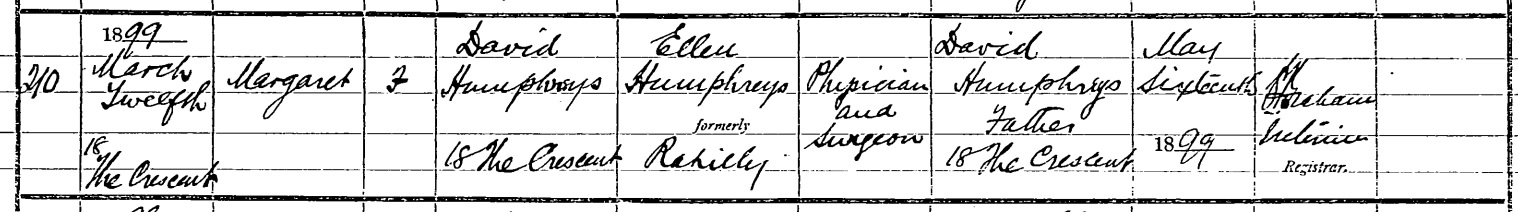 210
1899
March
Twelfth
18
The Crescent
Margaret
F
David
Humphreys
18 The Crescent
Ellen
Humphreys
formerly
Rahilly
Physician
and
Surgeon
David
Humphreys
Father
18 The Crescent
May
Sixteenth
1899
Interim
Registrar.